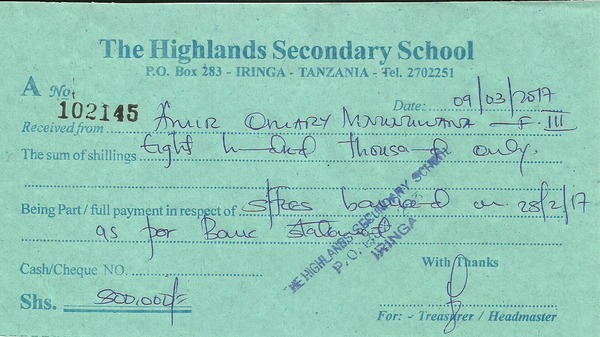 The Highlands Secondary School
P.O. Box 283 - IRINGA - TANZANIA - Tel. 2702251
A No. 102145
Date: 09/03/2017
Received from Amir Omary - F. III
The sum of shillings Eight hundred thousand only.
Being Part / full payment in respect of banked on 28/2/17
as per Bank statement
THE HIGHLANDS SECONDARY SCHOOL
P.O.
IRINGA
Cash/Cheque NO.
With Thanks
Shs. 800,000/=
For: - Treasurer / Headmaster